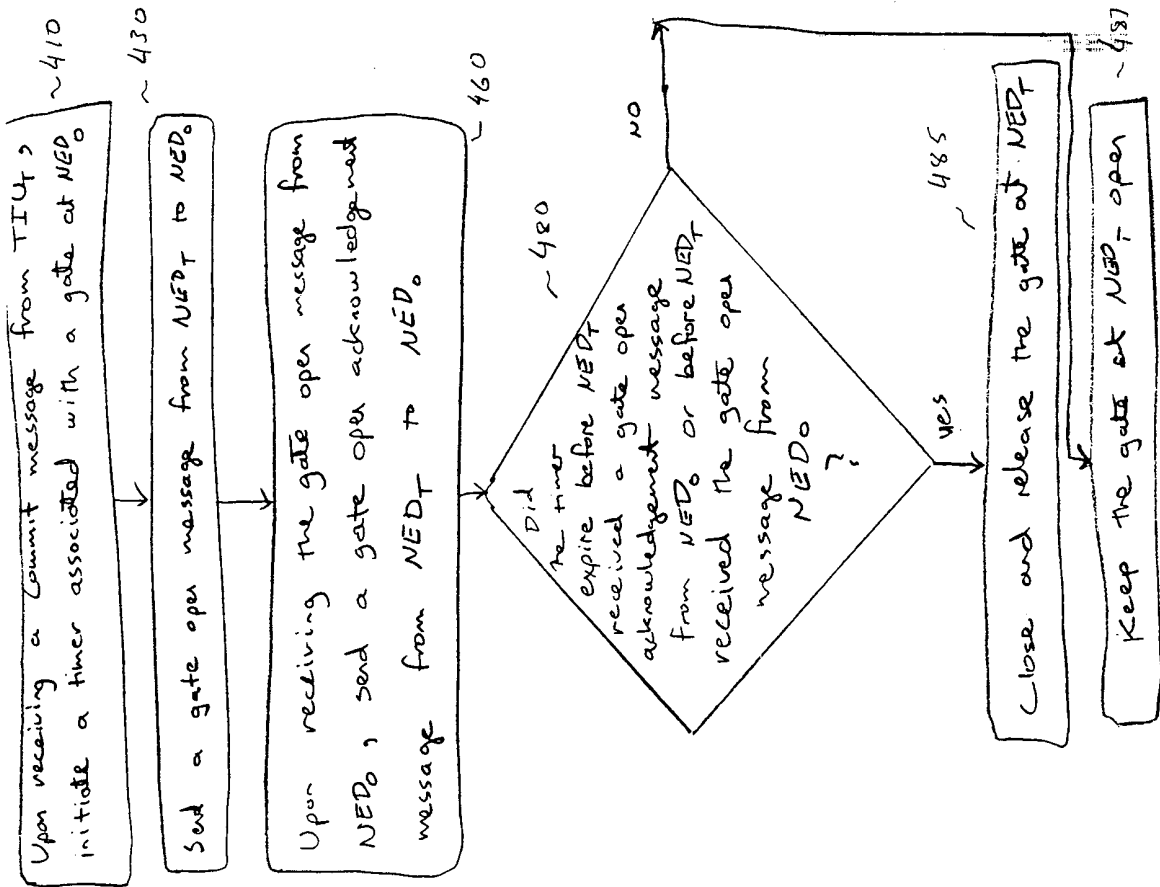 Upon receiving a Commit message from TIU_T,
initiate a timer associated with a gate at NED_O
~410
Send a gate open message from NED_T to NED_O
~430
Upon receiving the gate open message from
NED_O, send a gate open acknowledgement
message from NED_T to NED_O
~460
Did
he timer
expire before NED_T
received a gate open
acknowledgement message
from NED_O or before NED_T
received the gate open
message from
NED_O
?
~480
NO
yes
~485
Close and release the gate at NED_T
Keep the gate at NED_T open
~487